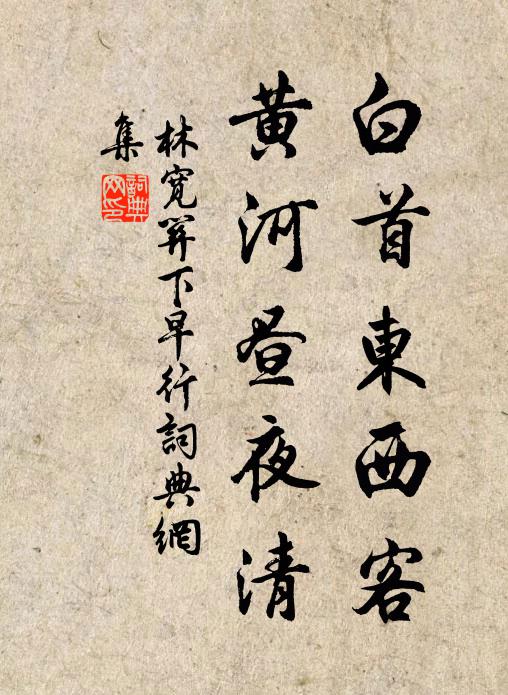 白首東西客
黄河昼夜清
林寬關下早行詞典網
集
詞典
网印